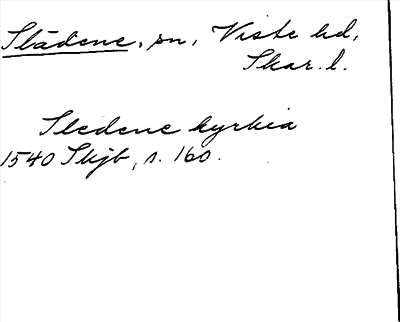 Slädene, sn, Viste hd,
Skar. l.
Sledene kyrkia
1540 Skjb, s. 160.